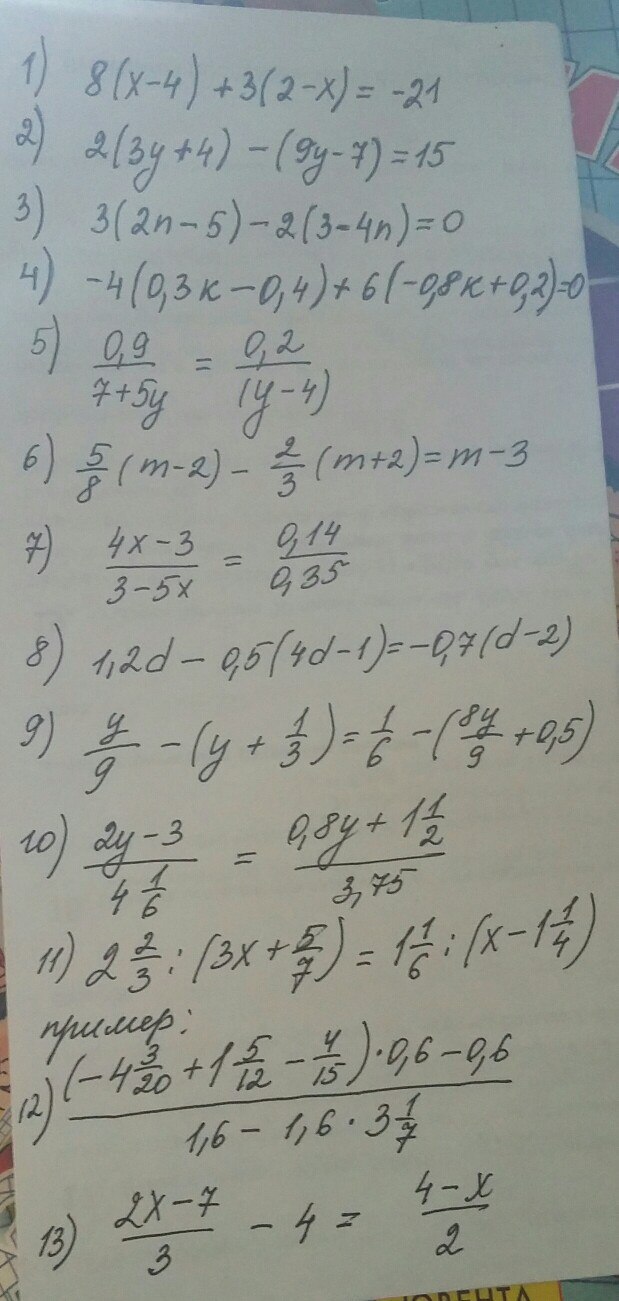 1) 8(x-4)+3(2-x)=-21
2) 2(3y+4)-(9y-7)=15
3) 3(2n-5)-2(3-4n)=0
4) -4(0,3к-0,4)+6(-0,8к+0,2)=0
5) 0,9/(7+5y) = 0,2/(y-4)
6) 5/8(m-2)-2/3(m+2)=m-3
7) (4x-3)/(3-5x) = 0,14/0,35
8) 1,2d-0,5(4d-1)=-0,7(d-2)
9) y/9-(y+1/3)=1/6-(8y/9+0,5)
10) (2y-3)/(4 1/6) = (0,8y+1 1/2)/3,75
11) 2 2/3:(3x+5/7)=1 1/6:(x-1 1/4)
пример:
12) ((-4 3/20+1 5/12-4/15)·0,6-0,6)/(1,6-1,6·3 1/7)
13) (2x-7)/3-4=(4-x)/2
ОВЕНТА